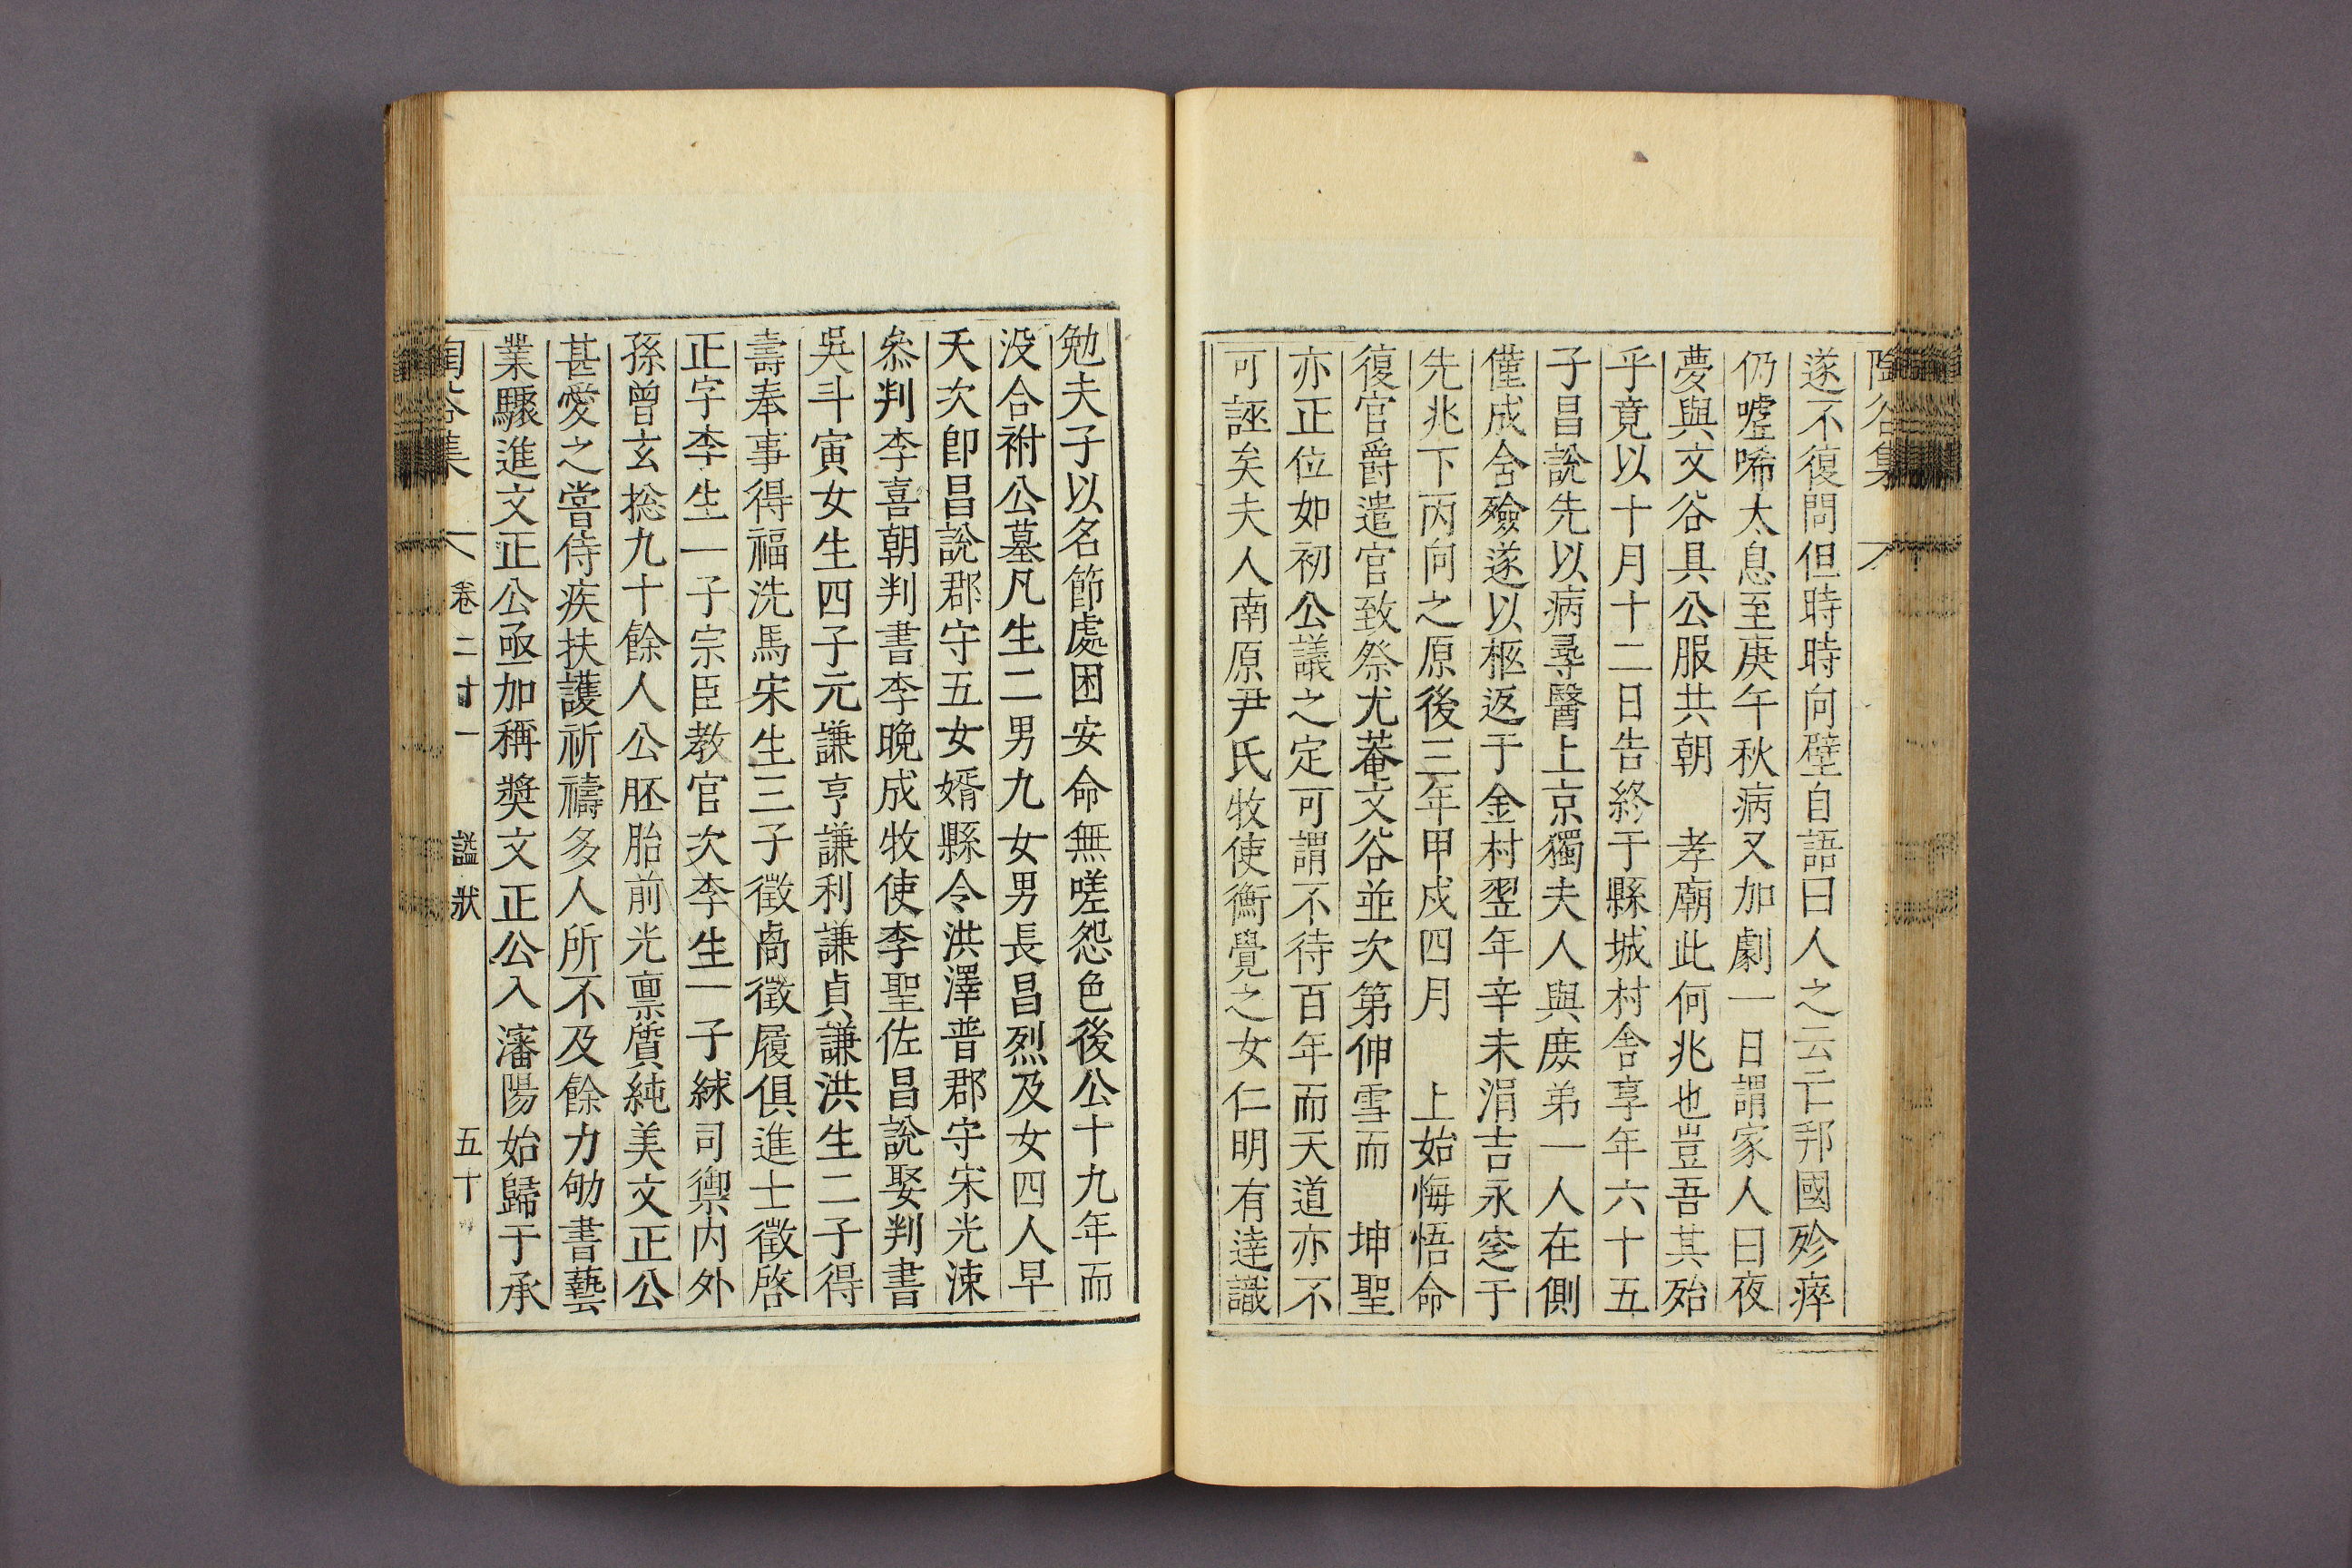 陶谷集
遂不復問但時時向壁自語曰人之云亡邦國殄瘁
仍噓唏太息至庚午秋病又加劇一日謂家人曰夜
夢與文谷具公服共朝　孝廟此何兆也豈吾其殆
乎竟以十月十二日告終于縣城村舍享年六十五
子昌說先以病尋醫上京獨夫人與庶弟一人在側
僅成含殮遂以柩返于金村翌年辛未涓吉永窆于
先兆下丙向之原後三年甲戌四月　上始悔悟命
復官爵遣官致祭尤菴文谷並次第伸雪而　坤聖
亦正位如初公議之定可謂不待百年而天道亦不
可誣矣夫人南原尹氏牧使衡覺之女仁明有達識
勉夫子以名節處困安命無嗟怨色後公十九年而
沒合祔公墓凡生二男九女男長昌烈及女四人早
夭次卽昌說郡守五女婿縣令洪澤普郡守宋光涑
叅判李喜朝判書李晚成牧使李聖佐昌說娶判書
吳斗寅女生四子元謙亨謙利謙貞謙洪生二子得
壽奉事得福洗馬宋生三子徵卨徵履俱進士徵啓
正字李生一子宗臣敎官次李生一子絿司禦內外
孫曾玄捴九十餘人公胚胎前光禀質純美文正公
甚愛之嘗侍疾扶護祈禱多人所不及餘力劬書藝
業驟進文正公亟加稱奬文正公入瀋陽始歸于承
陶谷集　卷二十一　諡狀　五十